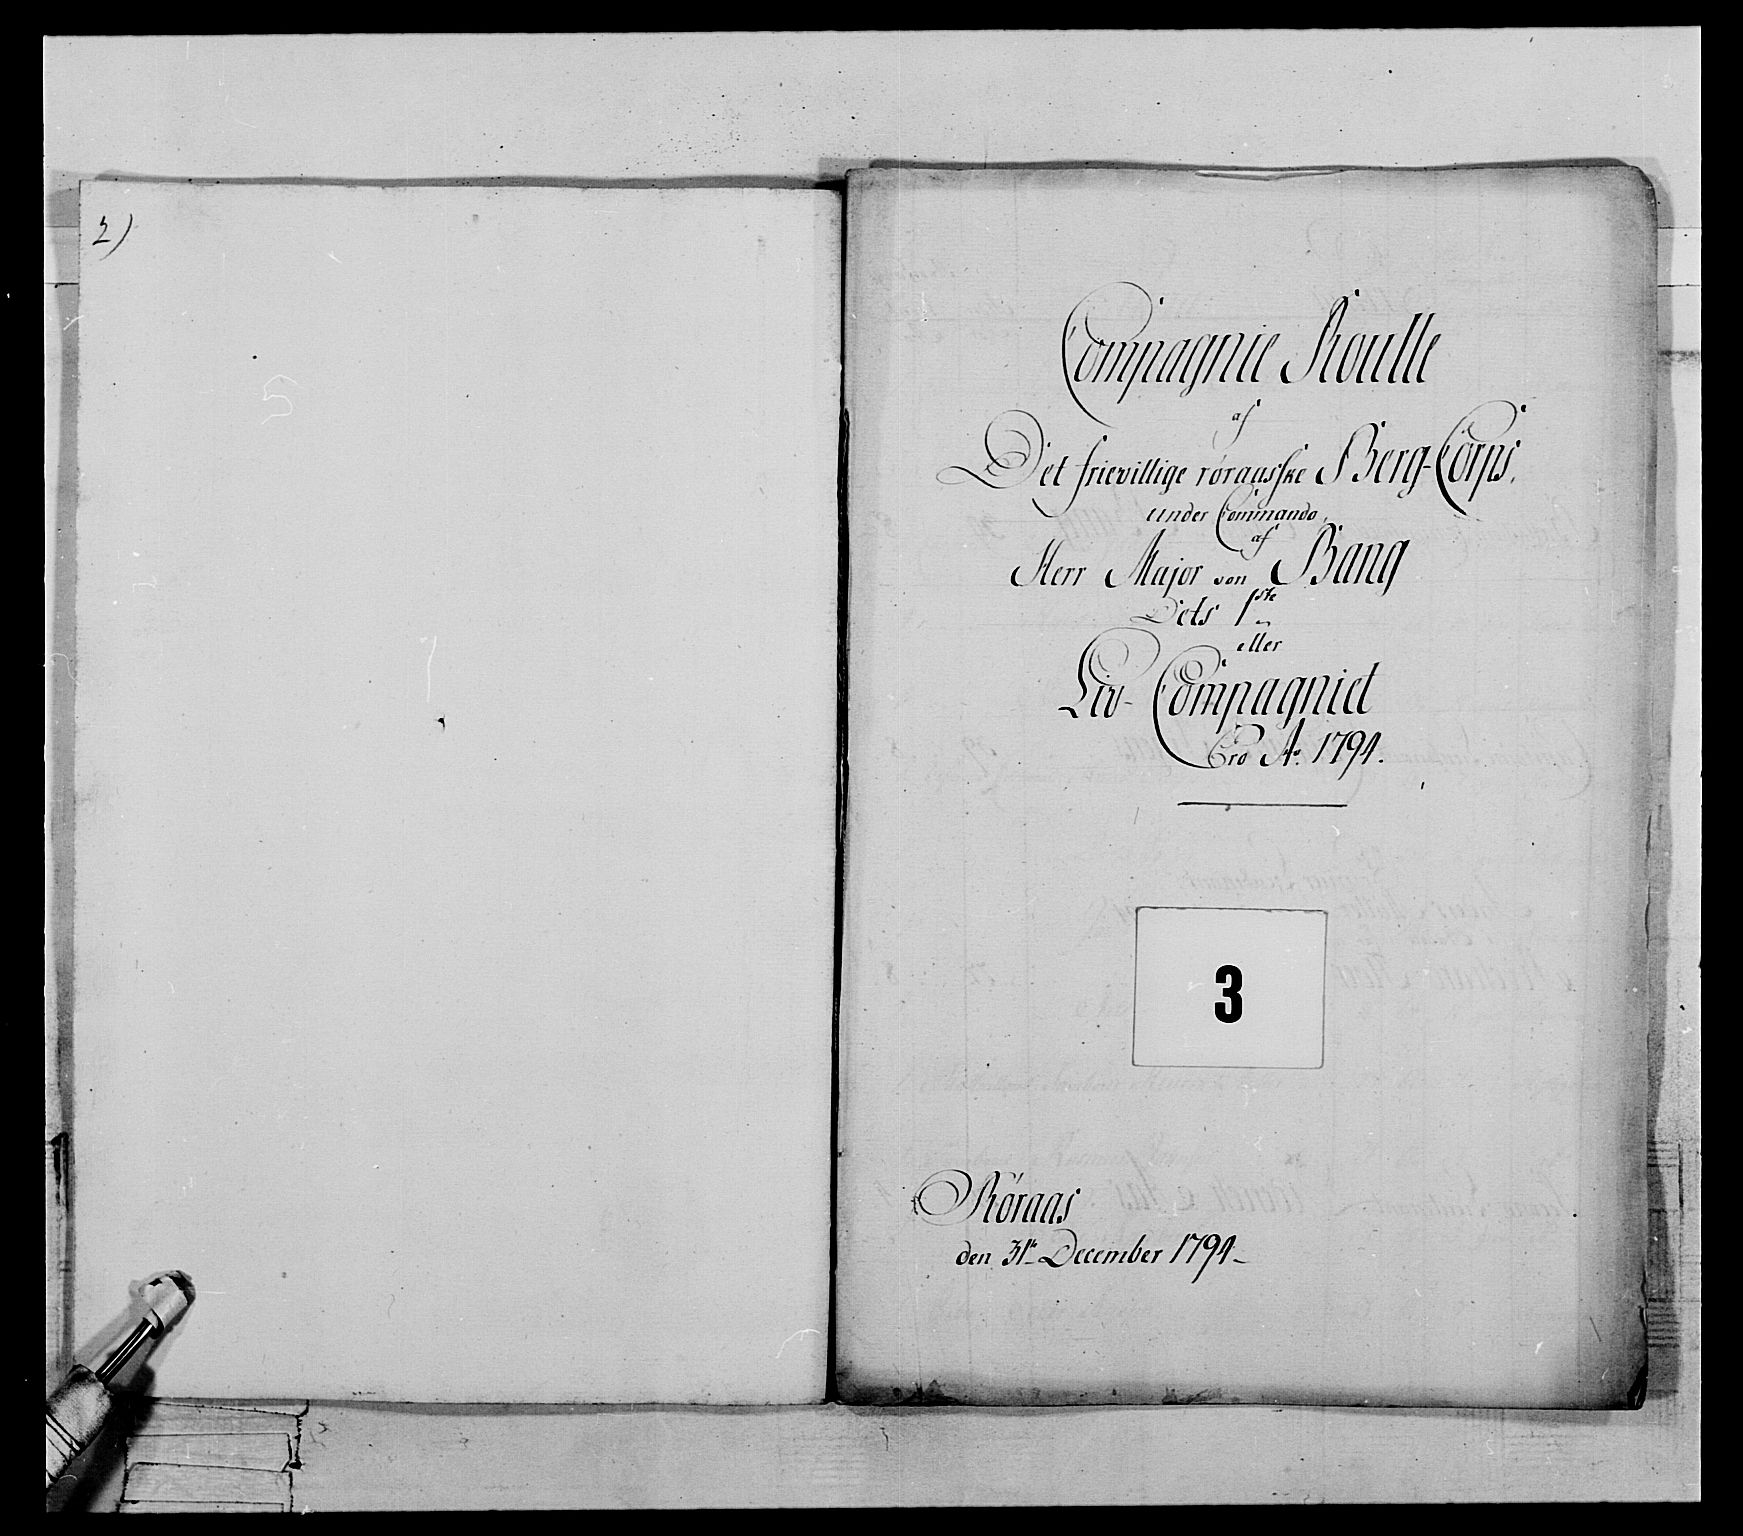 2)
Compagnie Roulle
af
Det frievillige röraasske Berg-Corps.
under Commando
af
Herr Major von Bang
Dets 1ste
eller
Liv-Compagniet
Pro Ao. 1794.
3
Röraas
den 31te December 1794